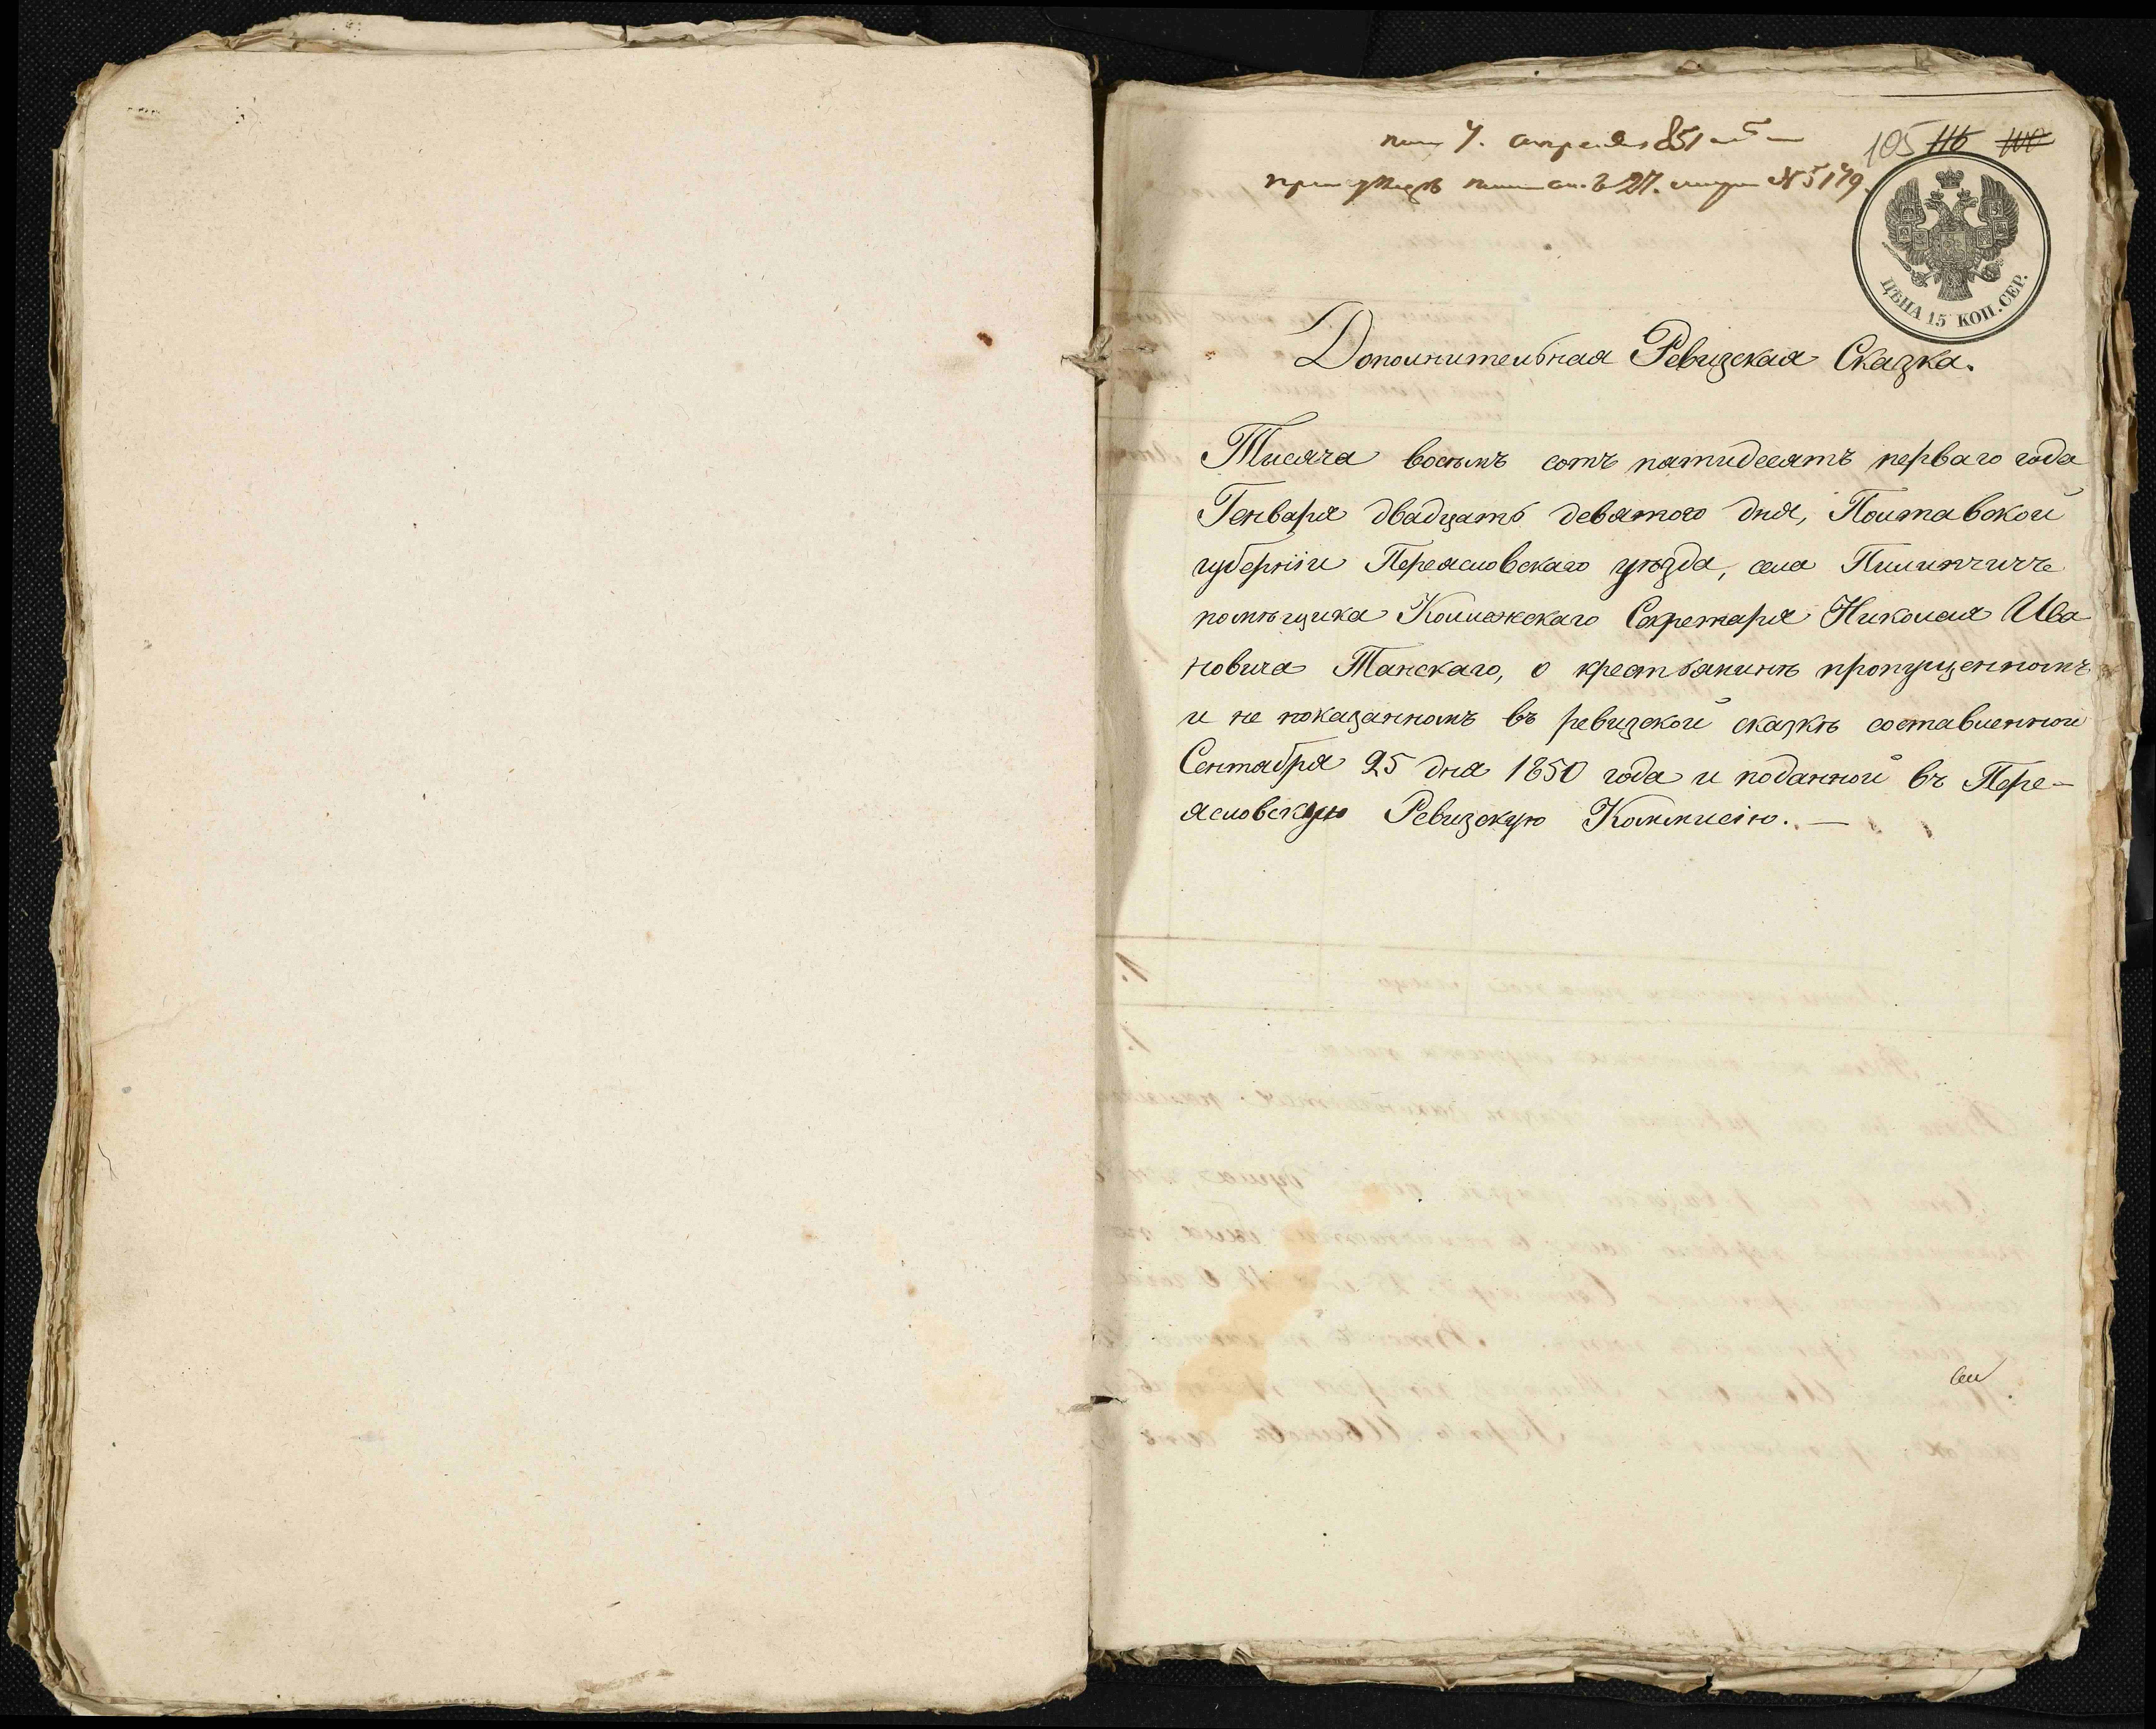 7. апреля 851
105 116 100
при указѣ 27. №5179.
ЦѢНА 15 КОП. СЕР.
Дополнительная Ревизская Сказка.
Тисяча восемъ сотъ пятидесятъ перваго года
Генваря двадцать девятого дня, Полтавской
губерніи Переясловскаго уѣзда, села Пилипчичъ
помѣщика Коллежскаго Секретаря Николая Ива
новича Танскаго, о крестьянинѣ пропущенномъ
и не показанномъ въ ревизской сказкѣ составленной
Сентября 25 дня 1850 года и поданной въ Пере-
ясловскую Ревизскую Коммисію. —